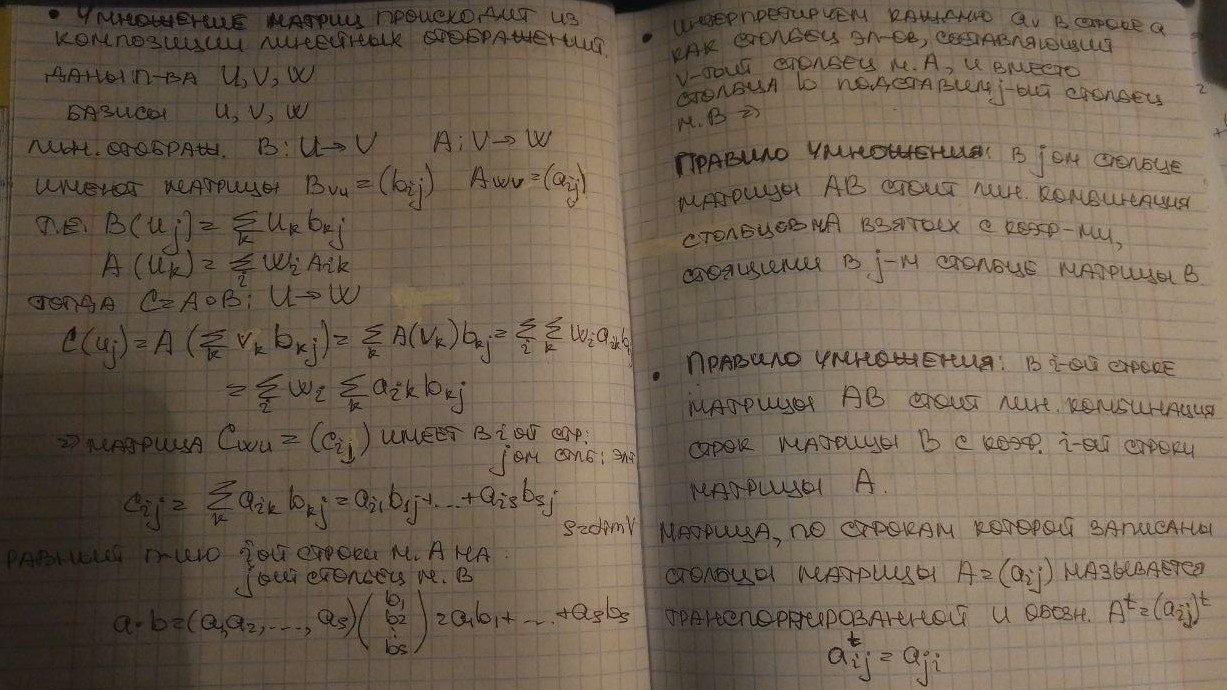 • Умножение матриц происходит из
композиции линейных отображений.
Даны п-ва U, V, W
базисы u, v, w
лин. отображ. B: U → V A: V → W
имеют матрицы B_vu = (b_ij) A_wv = (a_ij)
т.е. B(u_j) = Σ_k u_k b_kj
A(u_k) = Σ_i w_i A_ik
тогда C = A∘B: U → W
C(u_j) = A(Σ_k v_k b_kj) = Σ_k A(v_k) b_kj = Σ_i Σ_k w_i a_ik b
= Σ_i w_i Σ_k a_ik b_kj
⇒ матрица C_wu = (c_ij) имеет в i ой стр.;
j ом столб; эл
c_ij = Σ_k a_ik b_kj = a_i1 b_1j + ... + a_is b_sj
s = dim V
равный п-нию i ой строки м. A на
j ый столбец м. B
a·b = (a_1 a_2, ..., a_s) (b_1 b_2 : b_s) = a_1 b_1 + ... + a_s b_s
• Интерпретируем каждую a_v в строке a
как столбец эл-ов, составляющий
v-тый столбец м. A, и вместо
столбца b подставим j-ый столбец
м. B ⇒
Правило умножения: в j ом столбце
матрицы AB стоит лин. комбинация
столбцов A взятых с коэф-ми,
стоящими в j-м столбце матрицы B.
• Правило умножения: в i-ой строке
матрицы AB стоит лин. комбинация
строк матрицы B с коэф. i-ой строки
матрицы A.
Матрица, по строкам которой записаны
столбцы матрицы A = (a_ij) называется
транспонированной и обозн. A^t = (a_ij)^t
a^t_ij = a_ji